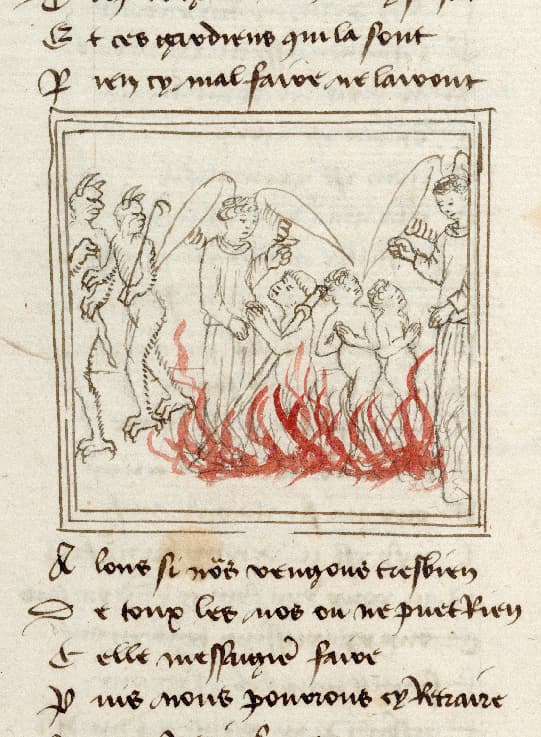 E t ces gardiens qui la sont
R ien cy mal faire ne lairont
A lons si nos vengons tresbien
D e toux les nos ou ne puet Rien
C elle faire
P uis nous pourrons cy Retraire